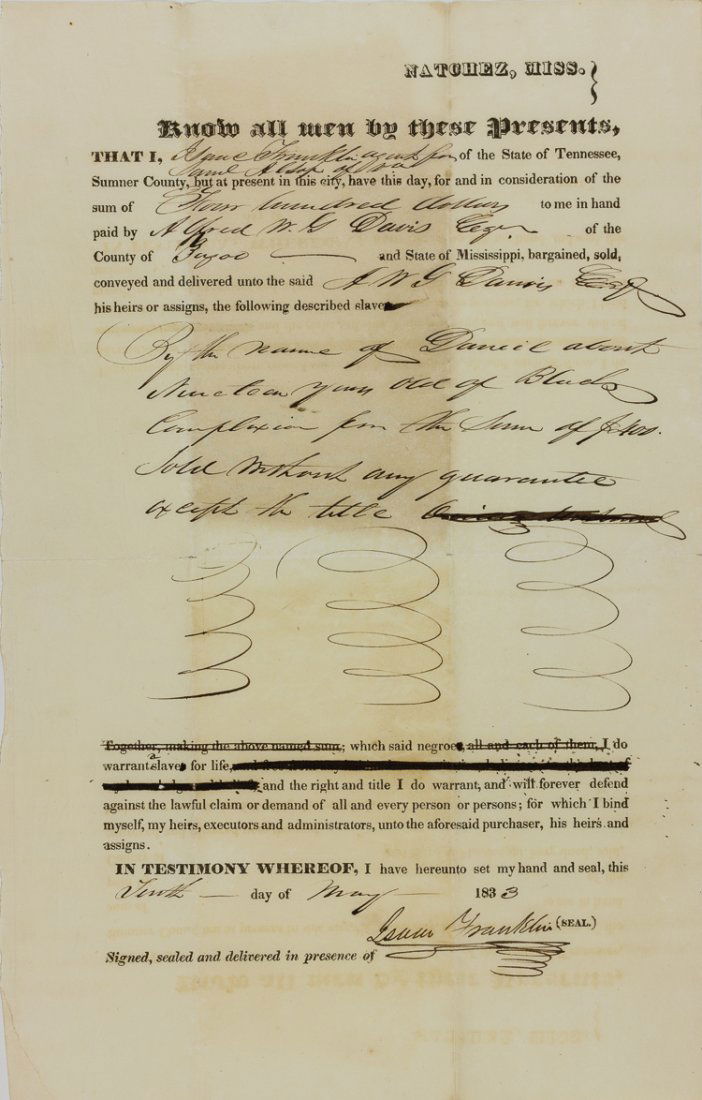 NATCHEZ, MISS. }
Know all men by these Presents,
THAT I, Isaac Franklin agent for of the State of Tennessee,
Saml Alsop of Va
Sumner County, but at present in this city, have this day, for and in consideration of the
sum of Four hundred dollars to me in hand
paid by Alfred W. G Davis Esqr of the
County of Bayou and State of Mississippi, bargained, sold,
conveyed and delivered unto the said A W G Davis Esqr
his heirs or assigns, the following described slave
By the name of Daniel about
Nineteen years old of Black
Complexion for the Sum of $400.
Sold without any guarantee
except the title
Together, making the above named sum; which said negroe, all and each of them, I do
warrant a slave for life, and the right and title I do warrant, and will forever defend
against the lawful claim or demand of all and every person or persons; for which I bind
myself, my heirs, executors and administrators, unto the aforesaid purchaser, his heirs and
assigns.
IN TESTIMONY WHEREOF, I have hereunto set my hand and seal, this
Tenth day of May 1833
Isaac Franklin (SEAL.)
Signed, sealed and delivered in presence of